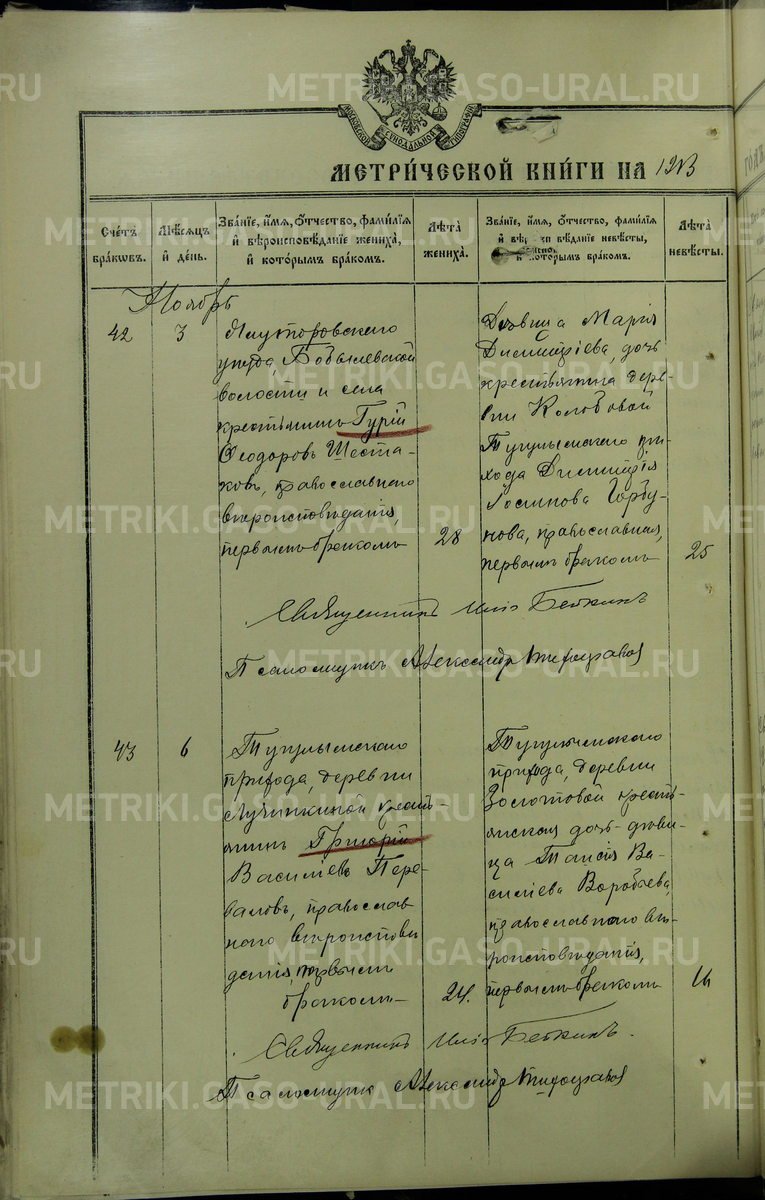 МОСКОВСКОЙ СѴНОДАЛЬНОЙ ТИПОГРАФІИ
МЕТРИ́ЧЕСКОЙ КНИ́ГИ НА 1913
Сче́тъ бра́ковъ.
Мѣ́сяцъ и҆ де́нь.
Зва́нїе, и҆́мя, ѻ҆́тчество, фами́лїя
и҆ вѣроисповѣ́данїе жениха̀,
и҆ кото́рымъ бра́комъ.
Лѣ́та жениха̀.
Зва́нїе, и҆́мя, ѻ҆́тчество, фами́лїя
невѣ́сты,
кото́рымъ бра́комъ.
Лѣ́та невѣ́сты.
Ноябрь
42
3
Ялуторовскаго
уѣзда, Бобылевской
волости и села
крестьянинъ Гурій
Ѳеодоровъ Шеста-
ковъ, православнаго
вѣроисповѣданія,
первымъ бракомъ
28
Дѣвица Марія
Димитріева, дочь
крестьянина дере-
вни Колобовой
Тугулымскаго при-
хода Димитрія
Горбу-
нова, православная,
первымъ бракомъ
25
Священникъ
Псаломщикъ Александръ
43
6
Тугулымскаго
прихода, деревни
Лучинкиной кресть-
янинъ Григорій
Василіевъ Пере-
валовъ, православ
наго вѣроисповѣ
данія, первымъ
бракомъ
24.
Тугулымскаго
прихода, деревни
Золотовой кресть-
янская дочь-дѣви-
ца Таисія Ва-
силіева Воробьева,
православнаго вѣ-
роисповѣданія,
первымъ бракомъ
16
Священникъ
Псаломщикъ Александръ
METRIKI.GASO-URAL.RU